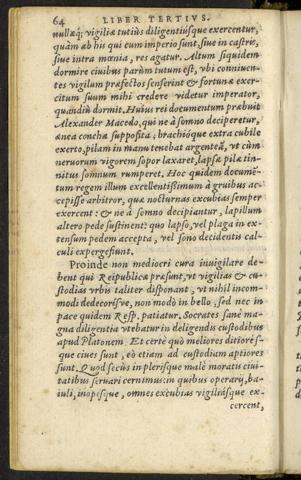 64 LIBER TERTIVS.
nullæq́; vigiliæ tutiùs diligentiúsque exercentur,
quàm ab his qui cum imperio sunt, siue in castris,
siue intra mœnia, res agatur. Altum siquidem
dormire ciuibus parùm tutum est, vbi conniuen-
tes vigilum præfectos senserint & fortunæ exer-
citum suum mihi credere videtur imperator,
quandiu dormit. Huius rei documentum præbuit
Alexander Macedo, qui ne à somno deciperetur,
ænea concha supposita; brachióque extra cubile
exerto, pilam in manu tenebat argenteã, vt cùm
neruorum vigorem sopor laxaret, lapsæ pilæ tin-
nitus somnum rumperet. Hoc quidem documẽ-
tum regem illum excellentissimum à gruibus ac-
cepisse arbitror, quæ nocturnas excubias semper
exercent: & ne à somno decipiantur, lapillum
altero pede sustinent: quo lapso, vel plaga in ex-
tensum pedem accepta, vel sono decidentis cal-
culi expergefiunt.
Proinde non mediocri cura inuigilare de-
bent qui Reipublicæ præsunt, vt vigilias & cu-
stodias vrbis taliter disponant, vt nihil incom-
modi dedecorísve, non modò in bello, sed nec in
pace quidem Resp. patiatur. Socrates sanè ma-
gna diligentia vtebatur in deligendis custodibus
apud Platonem. Et certè quò meliores ditiorés-
que ciues sunt, eò etiam ad custodiam aptiores
sunt. Quod secùs in plerisque malè moratis ciui-
tatibus seruari cernimus: in quibus operarij, ba-
iuli, inopésque, omnes excubias vigiliásque ex-
cercent,